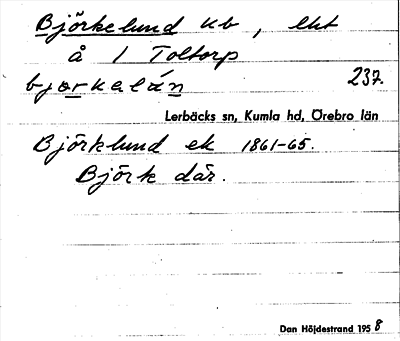 Björkelund kb, lht
å 1 Toltorp
bjørkelán 237.
Lerbäcks sn, Kumla hd, Örebro län
Björklund ek 1861-65.
Björk där.
Dan Höjdestrand 1958